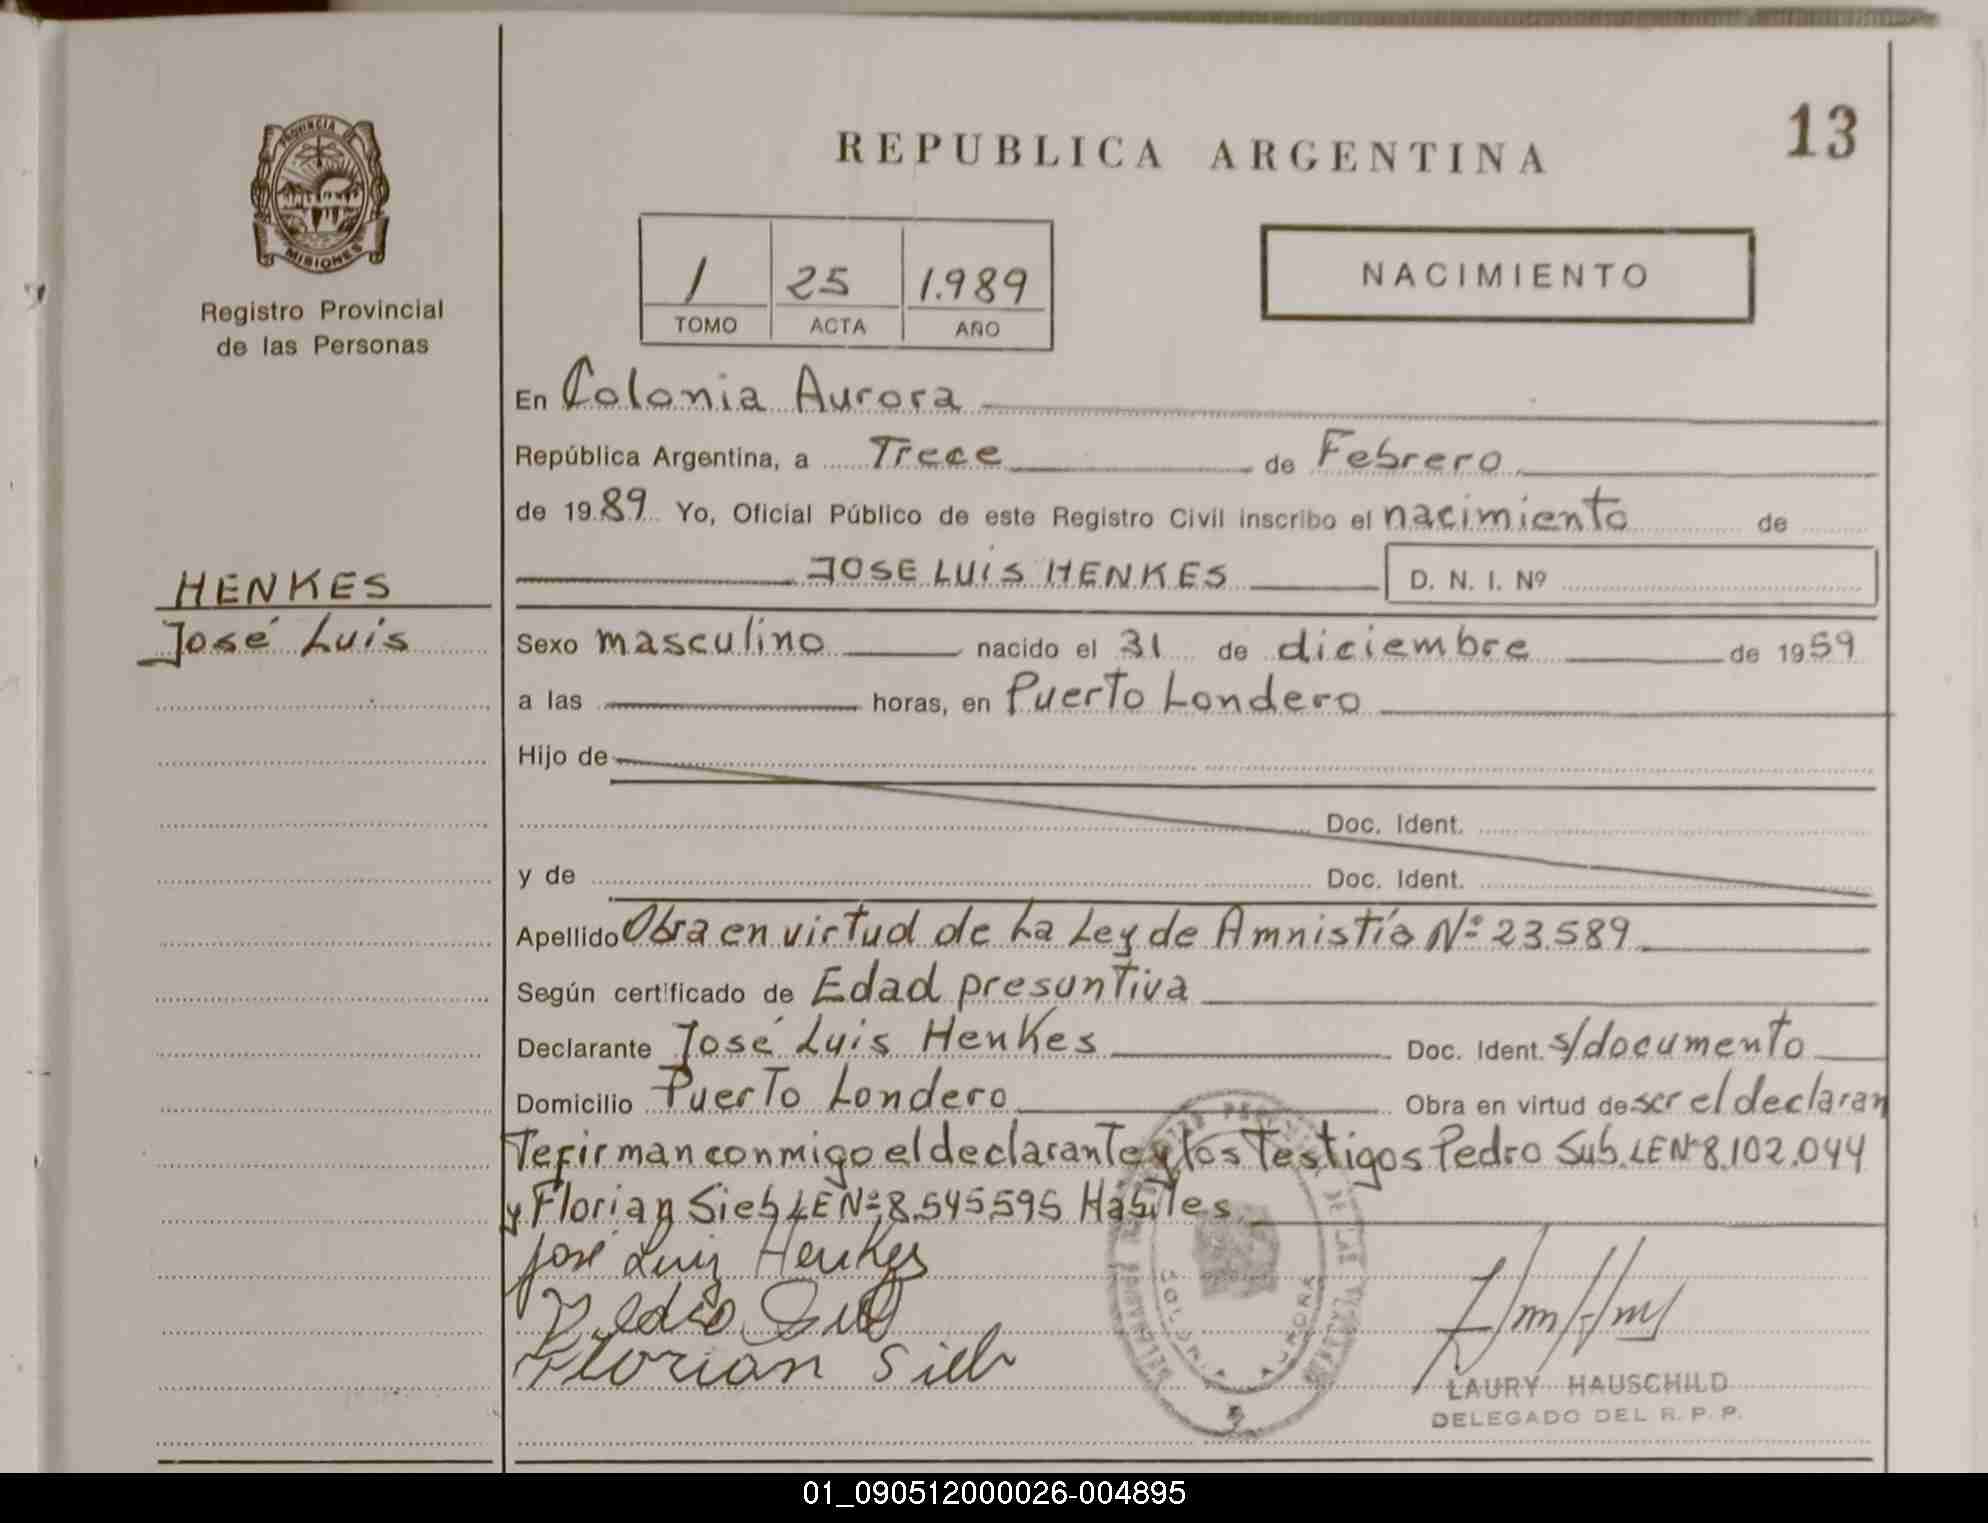 REPUBLICA ARGENTINA
13
PROVINCIA DE
MISIONES
Registro Provincial
de las Personas
1 25 1.989
TOMO ACTA AÑO
NACIMIENTO
En Colonia Aurora
República Argentina, a Trece de Febrero
de 1989 Yo, Oficial Público de este Registro Civil inscribo el nacimiento de
JOSE LUIS HENKES D. N. I. Nº
HENKES
José Luis
Sexo masculino nacido el 31 de diciembre de 1959
a las horas, en Puerto Londero
Hijo de
Doc. Ident.
y de Doc. Ident.
Apellido Obra en virtud de La Ley de Amnistía Nº 23.589
Según certificado de Edad presuntiva
Declarante José Luis Henkes Doc. Ident. s/documento
Domicilio Puerto Londero Obra en virtud de ser el declaran
te firman conmigo el declarante y los testigos Pedro Sub. LE Nº 8.102.044
y Florian Sieb LE Nº 8.545.595 Habiles
José Luiz Henkes
Pedro
Florian Sieb
DE LAS
COLONIA AURORA
LAURY HAUSCHILD
DELEGADO DEL R. P. P.
01_090512000026-004895